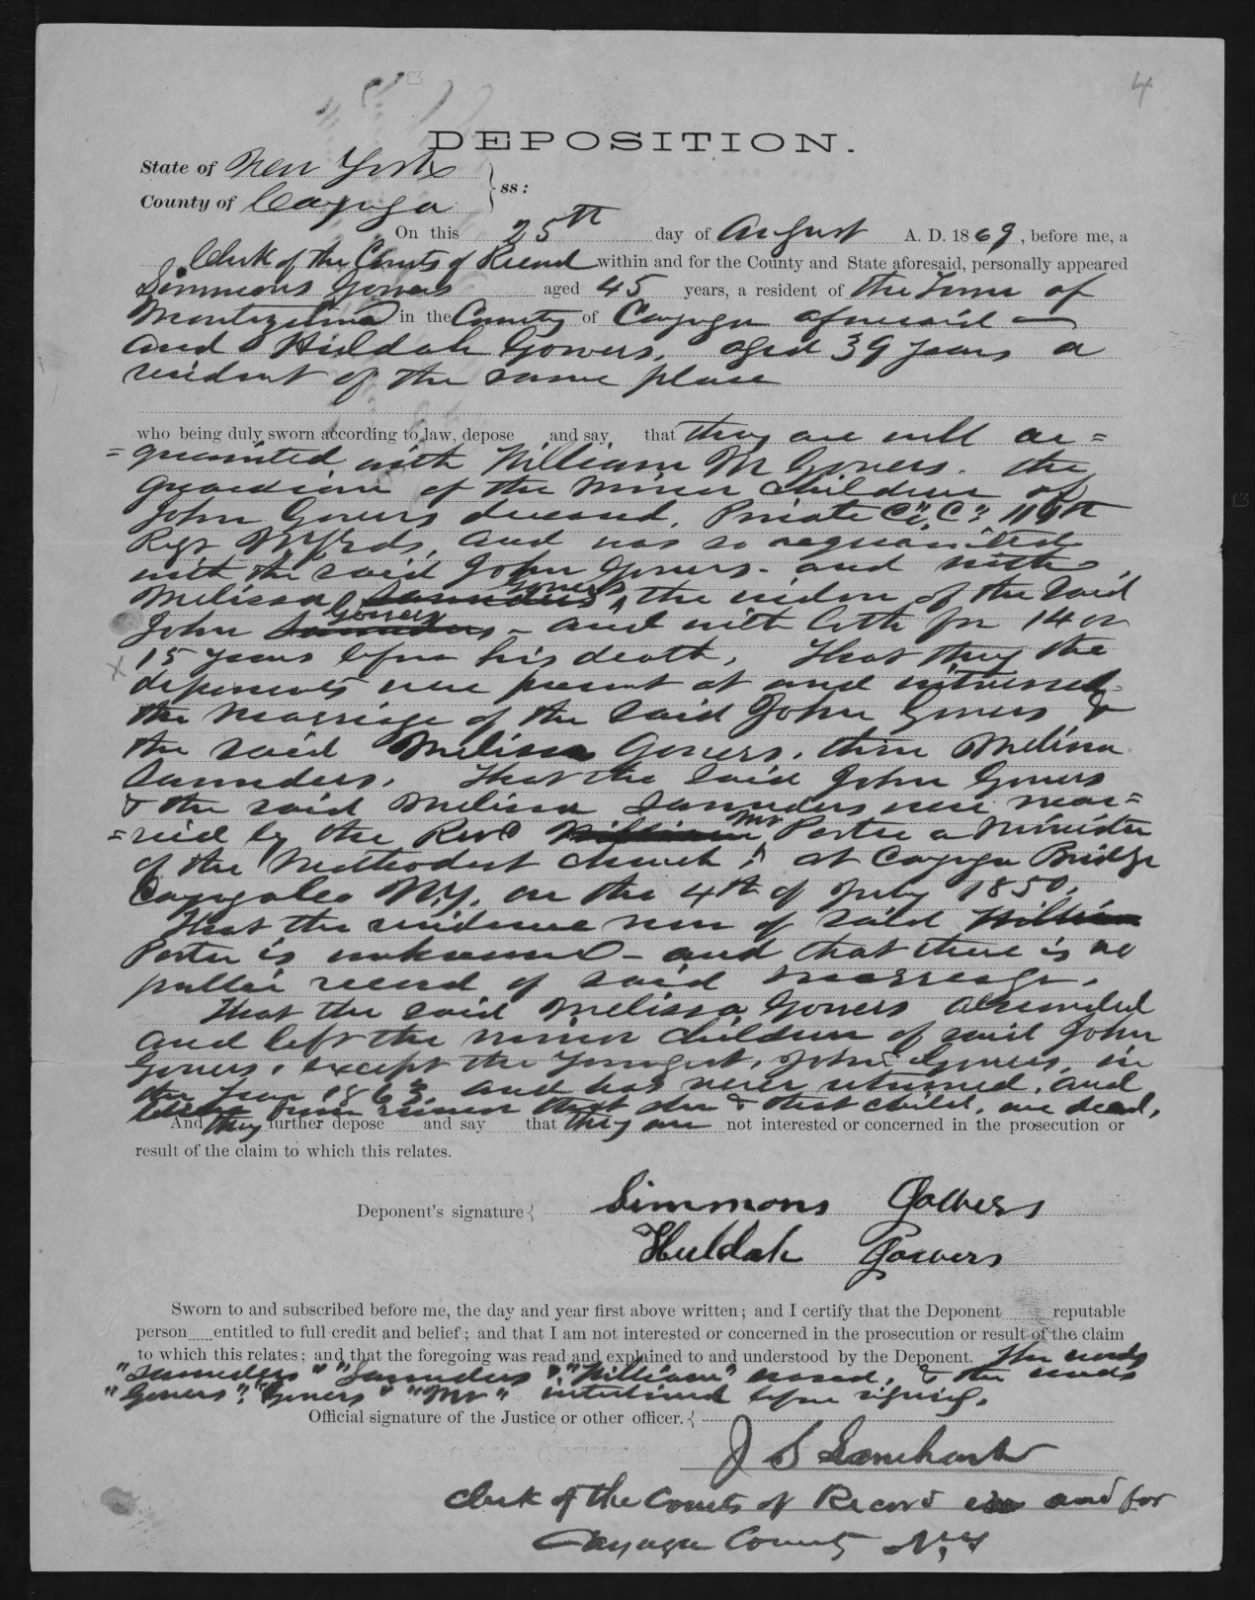 4
DEPOSITION.
State of New York
County of Cayuga } ss:
On this 25th day of August A. D. 1869, before me, a
Clerk of the Courts of Record within and for the County and State aforesaid, personally appeared
Simmons Gowers aged 45 years, a resident of the Town of
Montezuma in the County of Cayuga aforesaid —
and Huldah Gowers, aged 39 years a
resident of the same place
who being duly sworn according to law, depose and say, that they are well ac=
=quainted with William M Gowers. the
guardian of the minor children of
John Gowers deceased, Private Co "C", 11th
Regt N.Y. Vols, and was so acquainted
with the said John Gowers - and with
Melissa Saunders Gowers, the widow of the said
John Saunders Gowers - and with both for 14 or
15 years before his death. That they the
deponents were present at and witnessed
the marriage of the said John Gowers &
the said Melissa Gowers, then Melissa
Saunders. That the said John Gowers
& the said Melissa Saunders were mar=
=ried by the Revd William Mr Porter a Minister
of the Methodist church, at Cayuga Bridge
Cayuga Co N.Y. on the 4th of July 1850.
That the residence now of said William
Porter is unknown - and that there is no
public record of said marriage.
That the said Melissa Gowers absconded
and left the minor children of said John
Gowers, except the youngest, John Gowers, in
the year 1863 and has never returned, and
rumor that she & that child, are dead,
And they further depose and say that they are not interested or concerned in the prosecution or
result of the claim to which this relates.
Deponent's signature { Simmons Gowers
Huldah Gowers
Sworn to and subscribed before me, the day and year first above written; and I certify that the Deponent reputable
person entitled to full credit and belief; and that I am not interested or concerned in the prosecution or result of the claim
to which this relates; and that the foregoing was read and explained to and understood by the Deponent. The words
"Saunders" "Saunders" "William" erased, & the words
"Gowers", "Gowers" "Mr" interlined before signing.
Official signature of the Justice or other officer. {
J S Lanehart
Clerk of the Courts of Record in and for
Cayuga County N.Y